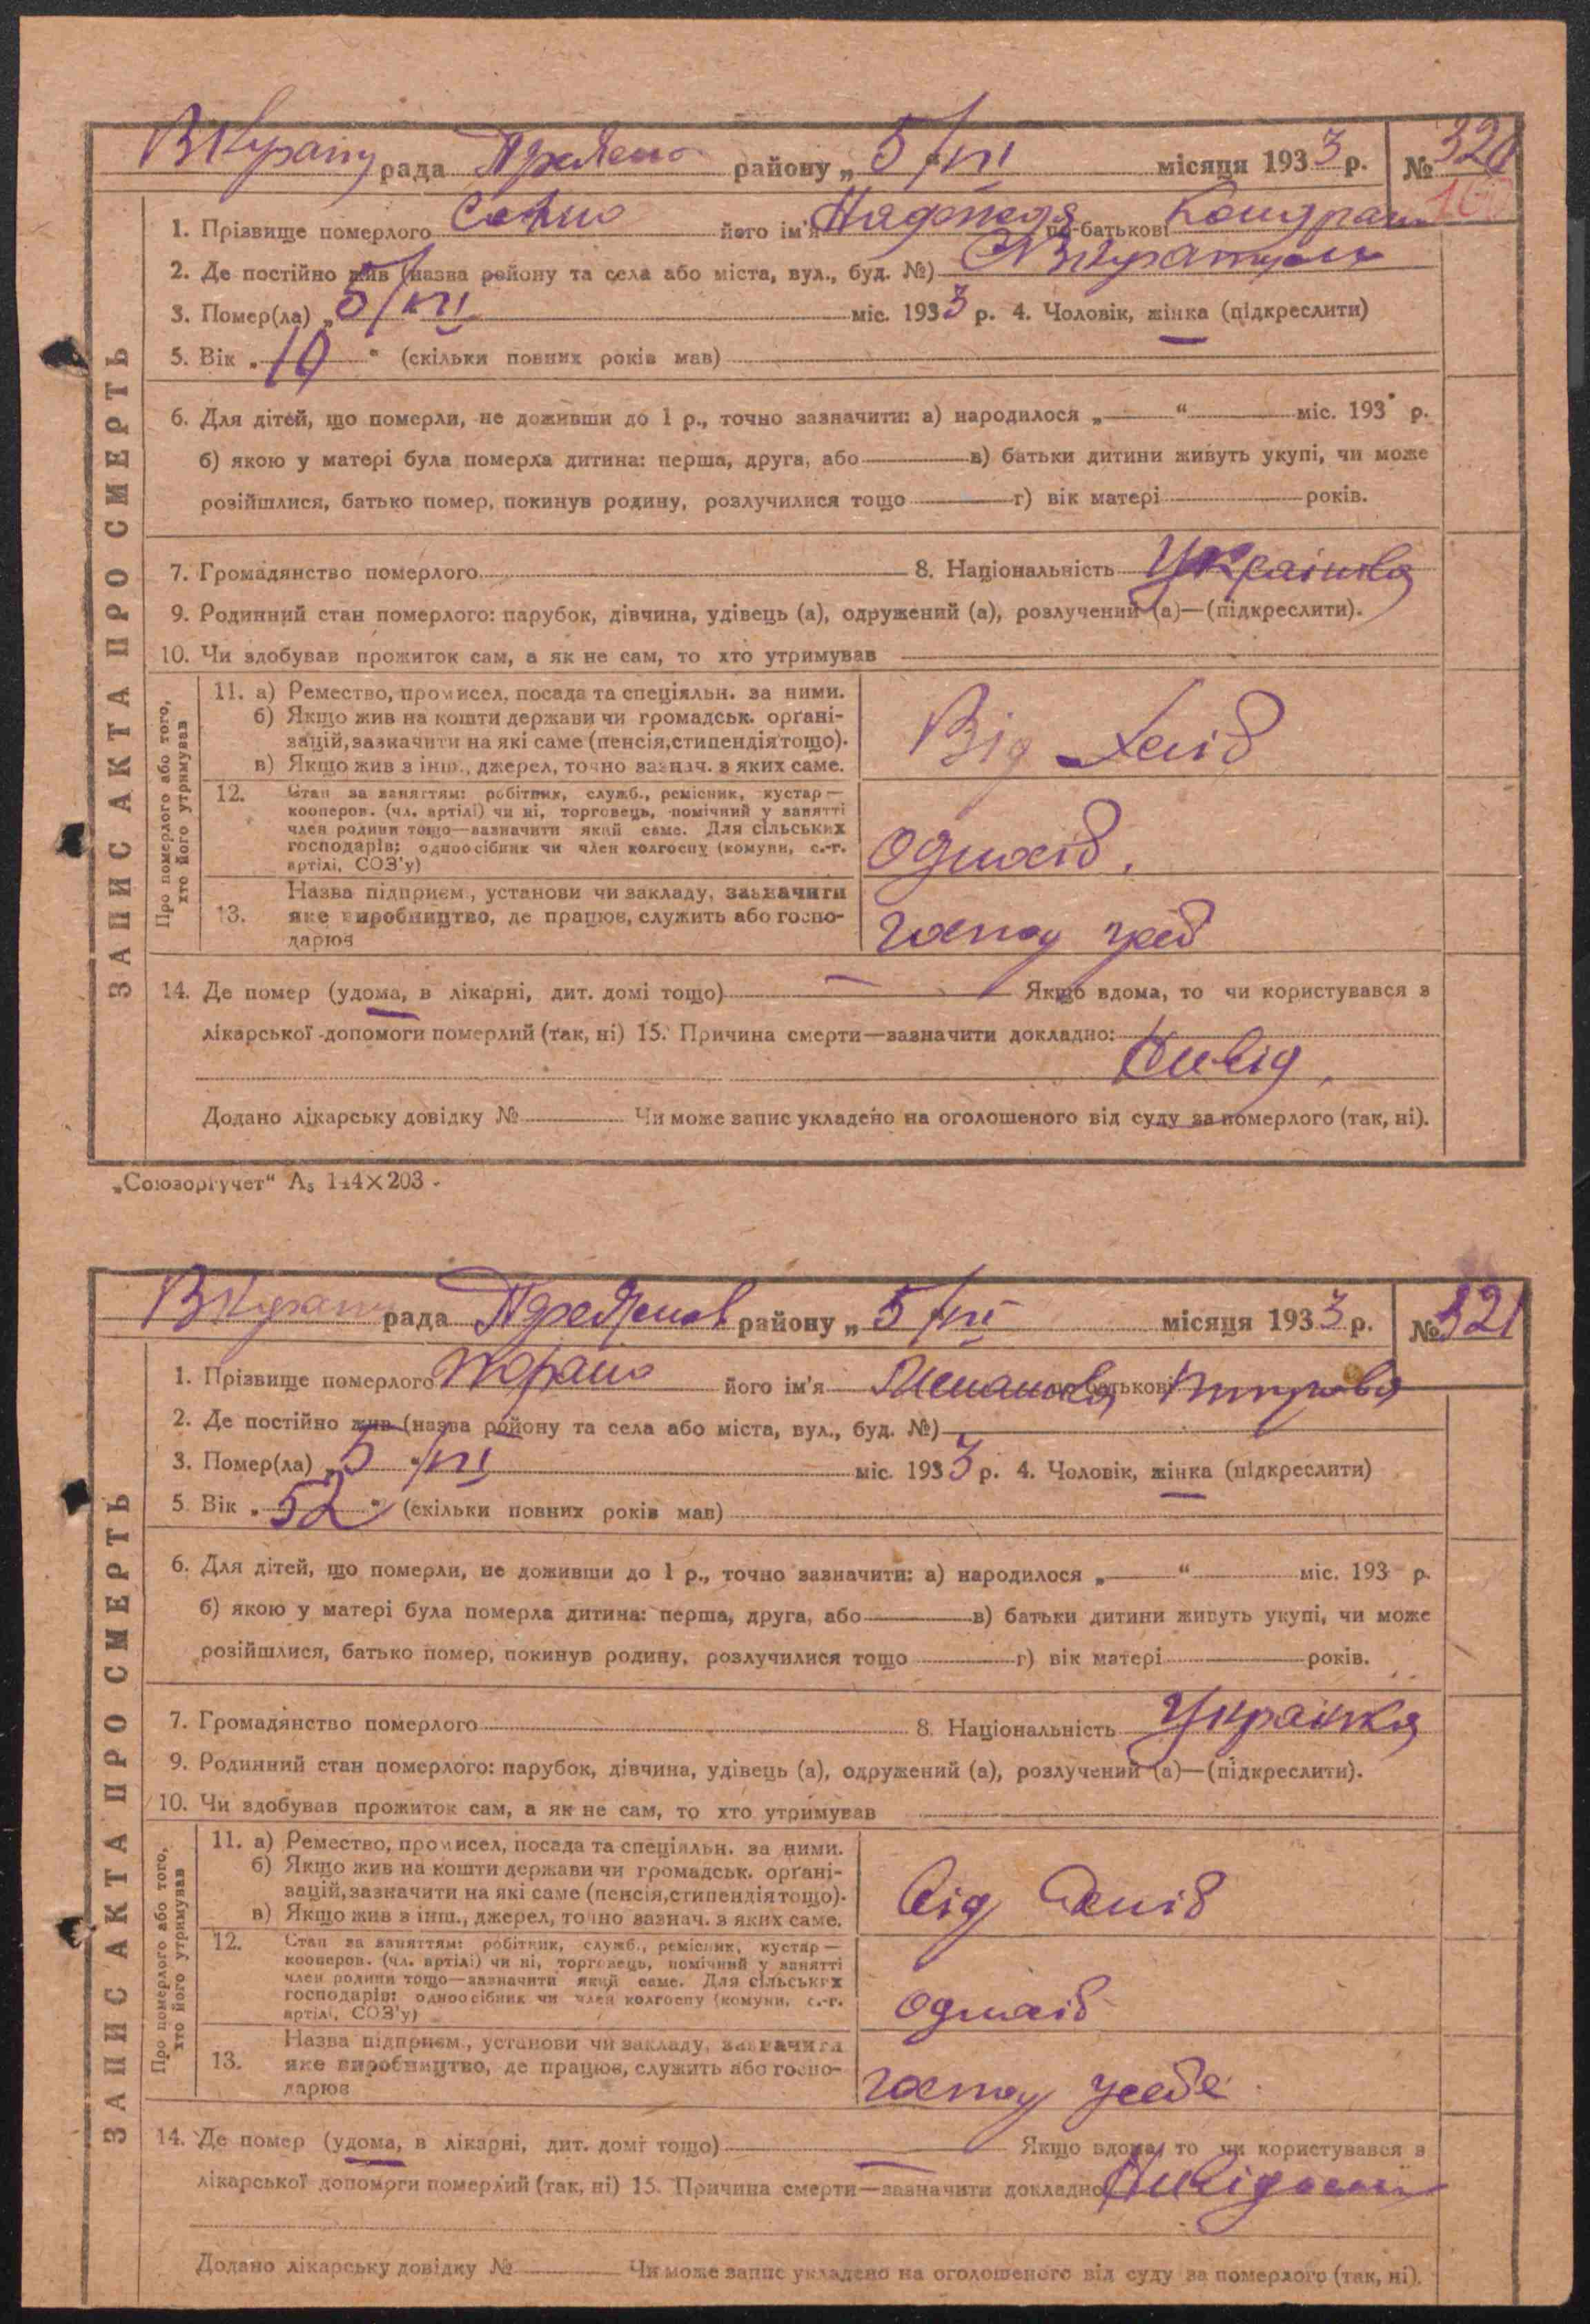 рада району „ 5 /VI місяця 1933 р. № 320
1. Прізвище померлого його ім'я Надежда по-батькові
2. Де постійно жив (назва району та села або міста, вул., буд. №)
3. Помер(ла) „ 5/VI міс. 1933 р. 4. Чоловік, жінка (підкреслити)
5. Вік „ 10 “ (скільки повних років мав)
6. Для дітей, що померли, не доживши до 1 р., точно зазначити: а) народилося „ “ міс. 193 р.
б) якою у матері була померла дитина: перша, друга, або в) батьки дитини живуть укупі, чи може
розійшлися, батько помер, покинув родину, розлучилися тощо г) вік матері років.
7. Громадянство померлого 8. Національність Українка
9. Родинний стан померлого: парубок, дівчина, удівець (а), одружений (а), розлучений (а)—(підкреслити).
10. Чи здобував прожиток сам, а як не сам, то хто утримував
ЗАПИС АКТА ПРО СМЕРТЬ
Про померлого або того,
хто його утримував
11. а) Ремество, промисел, посада та спеціяльн. за ними.
б) Якщо жив на кошти держави чи громадськ. орґані-
зацій, зазначити на які саме (пенсія, стипендія тощо).
в) Якщо жив з інш., джерел, точно зазнач. з яких саме.
Від
12. Стан за заняттям: робітник, служб., ремісник, кустар—
кооперов. (чл. артілі) чи ні, торговець, помічний у занятті
член родини тощо—зазначити який саме. Для сільських
господарів: одноосібник чи член колгоспу (комуни, с.-г.
артілі, СОЗ'у)
одноосіб.
13. Назва підприєм., установи чи закладу, зазначити
яке виробництво, де працює, служить або госпо-
дарює
господ
14. Де помер (удома, в лікарні, дит. домі тощо) Якщо вдома, то чи користувався з
лікарської допомоги померлий (так, ні) 15. Причина смерти—зазначити докладно:
Додано лікарську довідку № Чи може запис укладено на оголошеного від суду за померлого (так, ні).
„Союзоргучет“ А₅ 144×203
рада району „ 5 /VI місяця 1933 р. № 321
1. Прізвище померлого його ім'я по-батькові
2. Де постійно жив (назва району та села або міста, вул., буд. №)
3. Помер(ла) „ 5 “ /VI міс. 1933 р. 4. Чоловік, жінка (підкреслити)
5. Вік „ 52 “ (скільки повних років мав)
6. Для дітей, що померли, не доживши до 1 р., точно зазначити: а) народилося „ “ міс. 193 р.
б) якою у матері була померла дитина: перша, друга, або в) батьки дитини живуть укупі, чи може
розійшлися, батько помер, покинув родину, розлучилися тощо г) вік матері років.
7. Громадянство померлого 8. Національність Українка
9. Родинний стан померлого: парубок, дівчина, удівець (а), одружений (а), розлучений (а)—(підкреслити).
10. Чи здобував прожиток сам, а як не сам, то хто утримував
ЗАПИС АКТА ПРО СМЕРТЬ
Про померлого або того,
хто його утримував
11. а) Ремество, промисел, посада та спеціяльн. за ними.
б) Якщо жив на кошти держави чи громадськ. орґані-
зацій, зазначити на які саме (пенсія, стипендія тощо).
в) Якщо жив з інш., джерел, точно зазнач. з яких саме.
Від
12. Стан за заняттям: робітник, служб., ремісник, кустар—
кооперов. (чл. артілі) чи ні, торговець, помічний у занятті
член родини тощо—зазначити який саме. Для сільських
господарів: одноосібник чи член колгоспу (комуни, с.-г.
артілі, СОЗ'у)
одноосіб
13. Назва підприєм., установи чи закладу, зазначити
яке виробництво, де працює, служить або госпо-
дарює
господ у себе
14. Де помер (удома, в лікарні, дит. домі тощо) Якщо вдома, то чи користувався з
лікарської допомоги померлий (так, ні) 15. Причина смерти—зазначити докладно
Додано лікарську довідку № Чи може запис укладено на оголошеного від суду за померлого (так, ні).